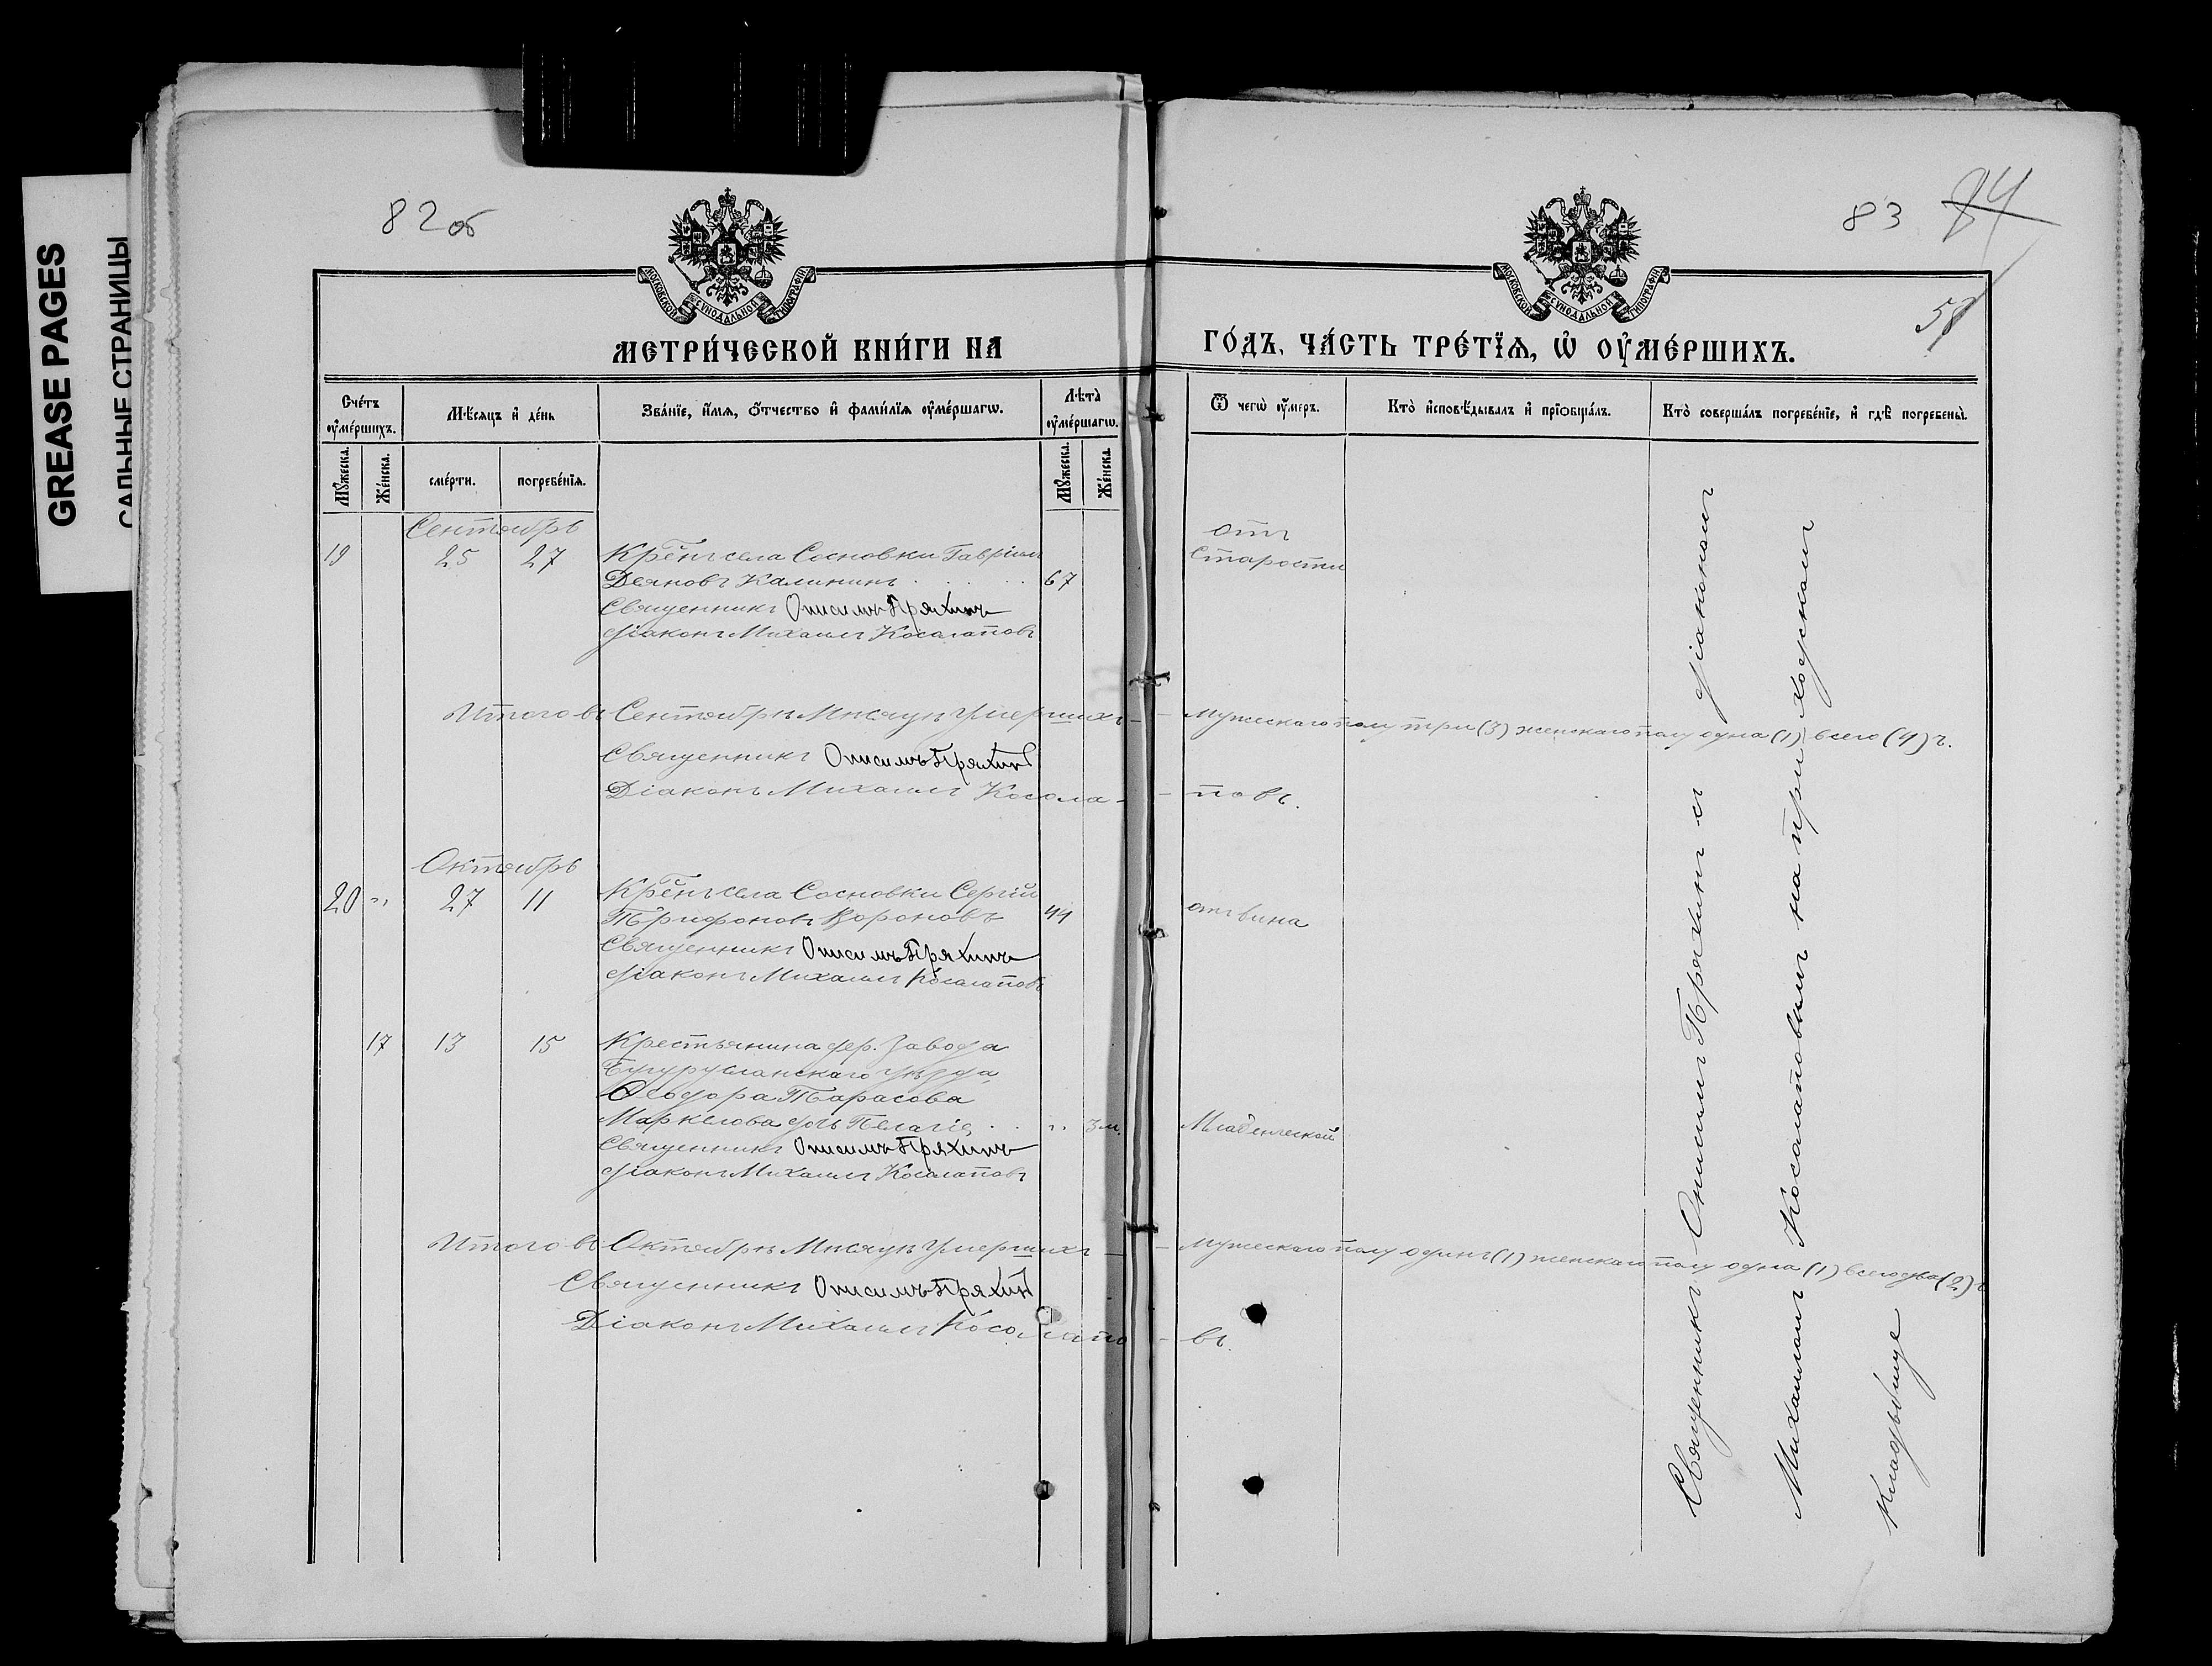 GREASE PAGES
САЛЬНЫЕ СТРАНИЦЫ
82об
МОСКОВСКОЙ СѴНОДАЛЬНОЙ ТИПОГРАФІИ
МЕТРИ́ЧЕСКОЙ КНИ́ГИ НА
Сче́тъ оу҆ме́ршихъ.
Мѣ́сяцъ и҆ де́нь
Зва́нїе, и҆́мя, ѻ҆́тчество и҆ фами́лїя оу҆ме́ршагѡ.
Лѣ́та оу҆ме́ршагѡ.
Мꙋ́жеска.
Же́нска.
сме́рти.
погребе́нїя.
Мꙋ́жеска.
Же́нска.
Сентябрь
19 25 27 Крѣнъ села Сосновки Гавріилъ
Деяновъ Калининъ . . . . 67
Священникъ Онисимъ Пряхинъ
Діаконъ Михаилъ Косолаповъ
Итого въ Сентябрѣ Мѣсяцѣ Умершихъ –
Священникъ Онисимъ Пряхинъ
Діаконъ Михаилъ Косола-
Октябрь
20 " 27 11 Крѣнъ села Сосновки Сергій
Трифоновъ Вороновъ 44
Священникъ Онисимъ Пряхинъ
Діаконъ Михаилъ Косолаповъ
17 13 15 Крестьянина дер. Завода
Бугурусланскаго Уѣзда
Ѳеодора Тарасова
Маркелова дочь Пелагія . . " 3м.
Священникъ Онисимъ Пряхинъ
Діаконъ Михаилъ Косолаповъ
Итого въ Октябрѣ Мѣсяцѣ Умершихъ –
Священникъ Онисимъ Пряхинъ
Діаконъ Михаилъ Косолапо
83 84
МОСКОВСКОЙ СѴНОДАЛЬНОЙ ТИПОГРАФІИ
58
ГО́ДЪ, ЧА́СТЬ ТРЕ́ТЇѦ, Ѡ҆ ОУ҆МЕ́РШИХЪ.
Ѿ чегѡ̀ оу҆́меръ.
Кто̀ и҆сповѣ́дывалъ и҆ прїѡбща́лъ.
Кто̀ соверша́лъ погребе́нїе, и҆ гдѣ̀ погребены̀.
отъ
старости
– мужескаго полу три (3) женскаго полу одна (1) всего (4) ч.
– повъ.
отъ вина
Младенческой
– мужескаго полу одинъ (1) женскаго полу одна (1) всего два (2) ч.
– въ.
Священникъ Онисимъ Пряхинъ съ діакономъ
Михаиломъ Косолаповымъ на приходскомъ
кладбище